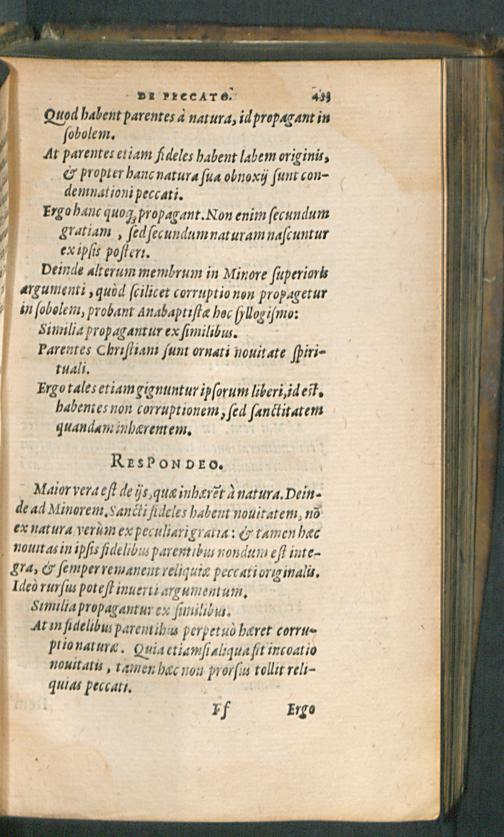 DE PECCATO. 433
Quod habent parentes à natura, id propagant in
sobolem.
At parentes etiam fideles habent labem originis,
& propter hanc natura sua obnoxij sunt con-
demnationi peccati.
Ergo hanc quoq; propagant. Non enim secundum
gratiam, sed secundum naturam nascuntur
ex ipsis posteri.
Deinde alterum membrum in Minore superioris
argumenti, quòd scilicet corruptio non propagetur
in sobolem, probant Anabaptistæ hoc syllogismo:
Similia propagantur ex similibus.
Parentes Christiani sunt ornati nouitate spiri-
tuali.
Ergo tales etiam gignuntur ipsorum liberi, id est,
habentes non corruptionem, sed sanctitatem
quandam inhærentem.
RESPONDEO.
Maior vera est de ijs, quæ inhærēt à natura. Dein-
de ad Minorem. Sancti fideles habent nouitatem, nō
ex natura verùm ex peculiari gratia: & tamen hæc
nouitas in ipsis fidelibus parentibus nondum est inte-
gra, & semper remanent reliquiæ peccati originalis.
Ideò rursus potest inuerti argumentum.
Similia propagantur ex similibus.
At in fidelibus parentibus perpetuò hæret corru-
ptio naturæ. Quia etiamsi aliqua sit incoatio
nouitatis, tamen hæc non prorsus tollit reli-
quias peccati.
Ff Ergo